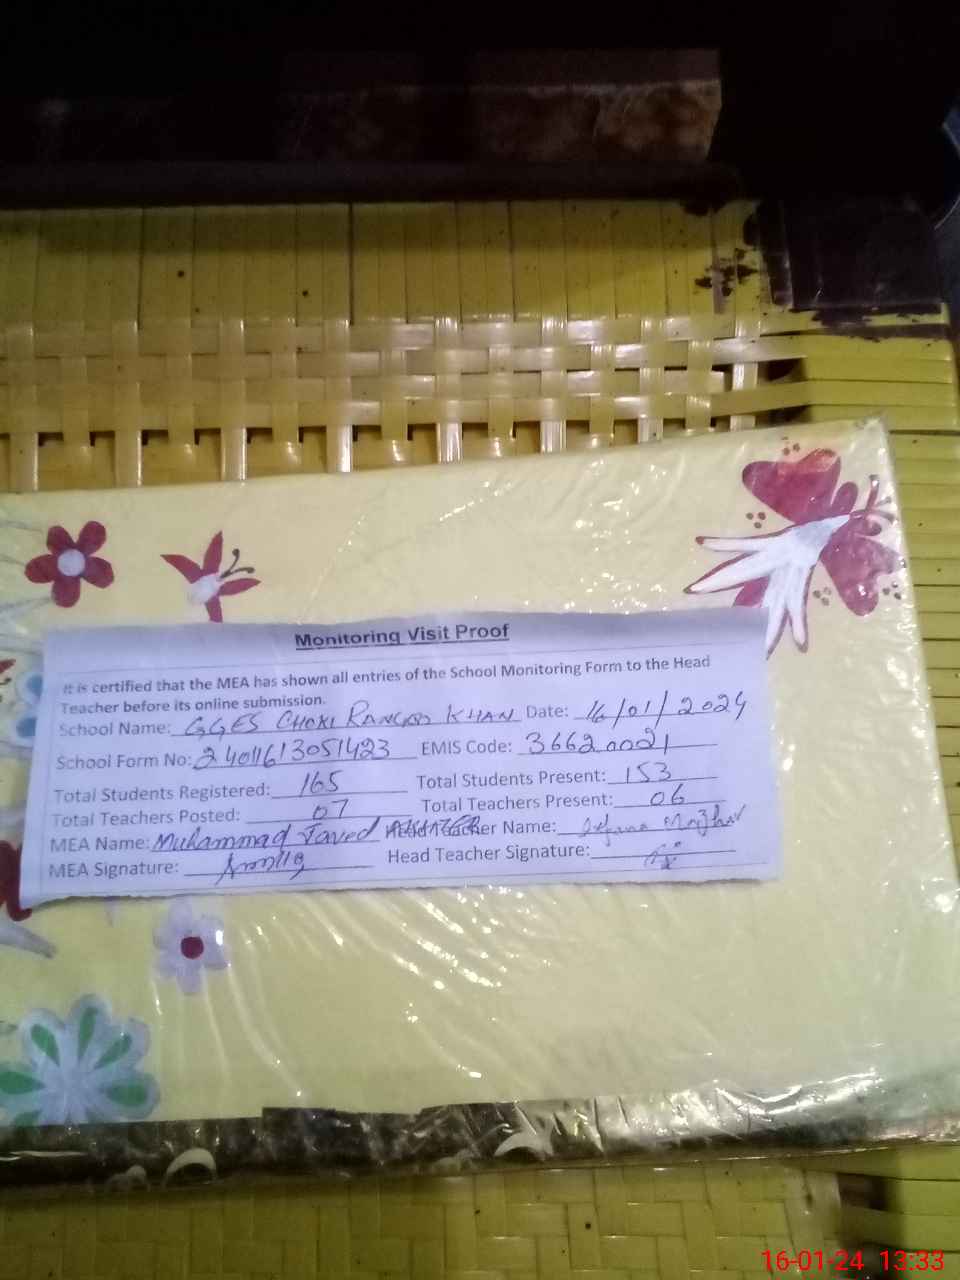 Monitoring Visit Proof
It is certified that the MEA has shown all entries of the School Monitoring Form to the Head
Teacher before its online submission.
School Name: GGES CHOKI RANGOO KHAN Date: 16/01/2024
School Form No: 24011613051423 EMIS Code: 36620021
Total Students Registered: 165 Total Students Present: 153
Total Teachers Posted: 07 Total Teachers Present: 06
MEA Name: Muhammad Javed Head Teacher Name: Mazhar
MEA Signature: Head Teacher Signature:
16-01-24 13:33